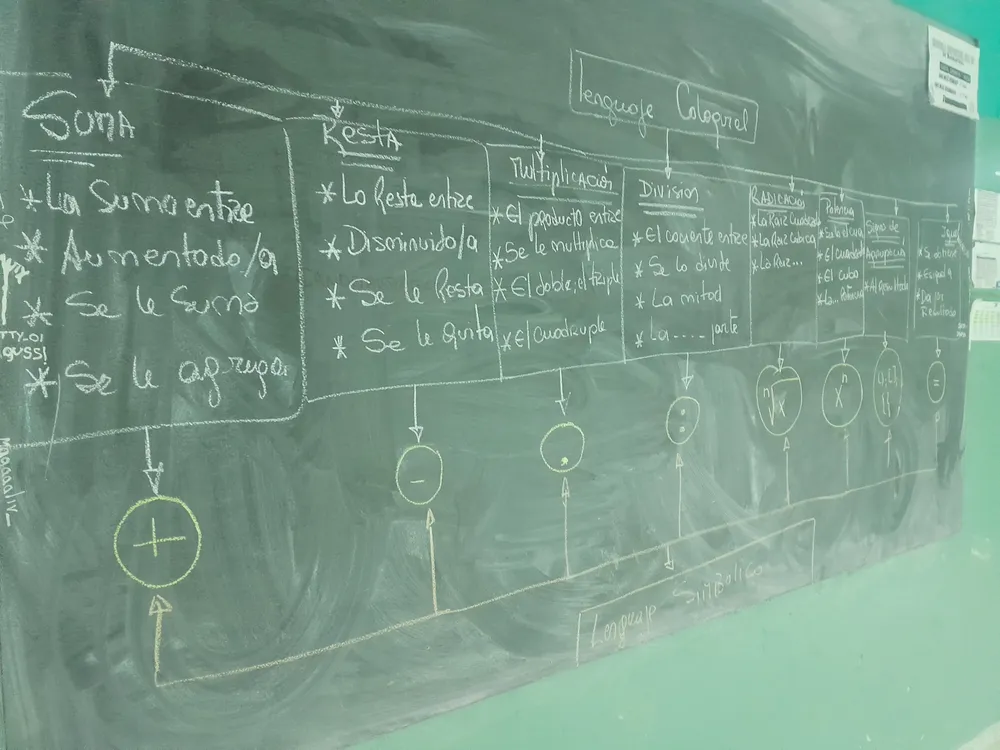 Lenguaje Coloquial
Suma
* La Suma entre
* Aumentado/a
* Se le Suma
* Se le agrega
+
Resta
* La Resta entre
* Disminuido/a
* Se le Resta
* Se le Quita
-
Multiplicación
* El producto entre
* Se le multiplica
* El doble, el triple
* El Cuadruple
.
División
* El cociente entre
* Se lo divide
* La mitad
* La .... parte
:
RADICACIÓN
* La Raiz Cuadrada
* La Raiz Cúbica
* La Raiz...
ⁿ√x
Potencia
* El Cuadrado
* El cubo
* La... Potencia
xⁿ
Signo de
Agrupación
* Al Resultado
* Es igual a
* Da por
Resultado
=
Lenguaje Simbólico